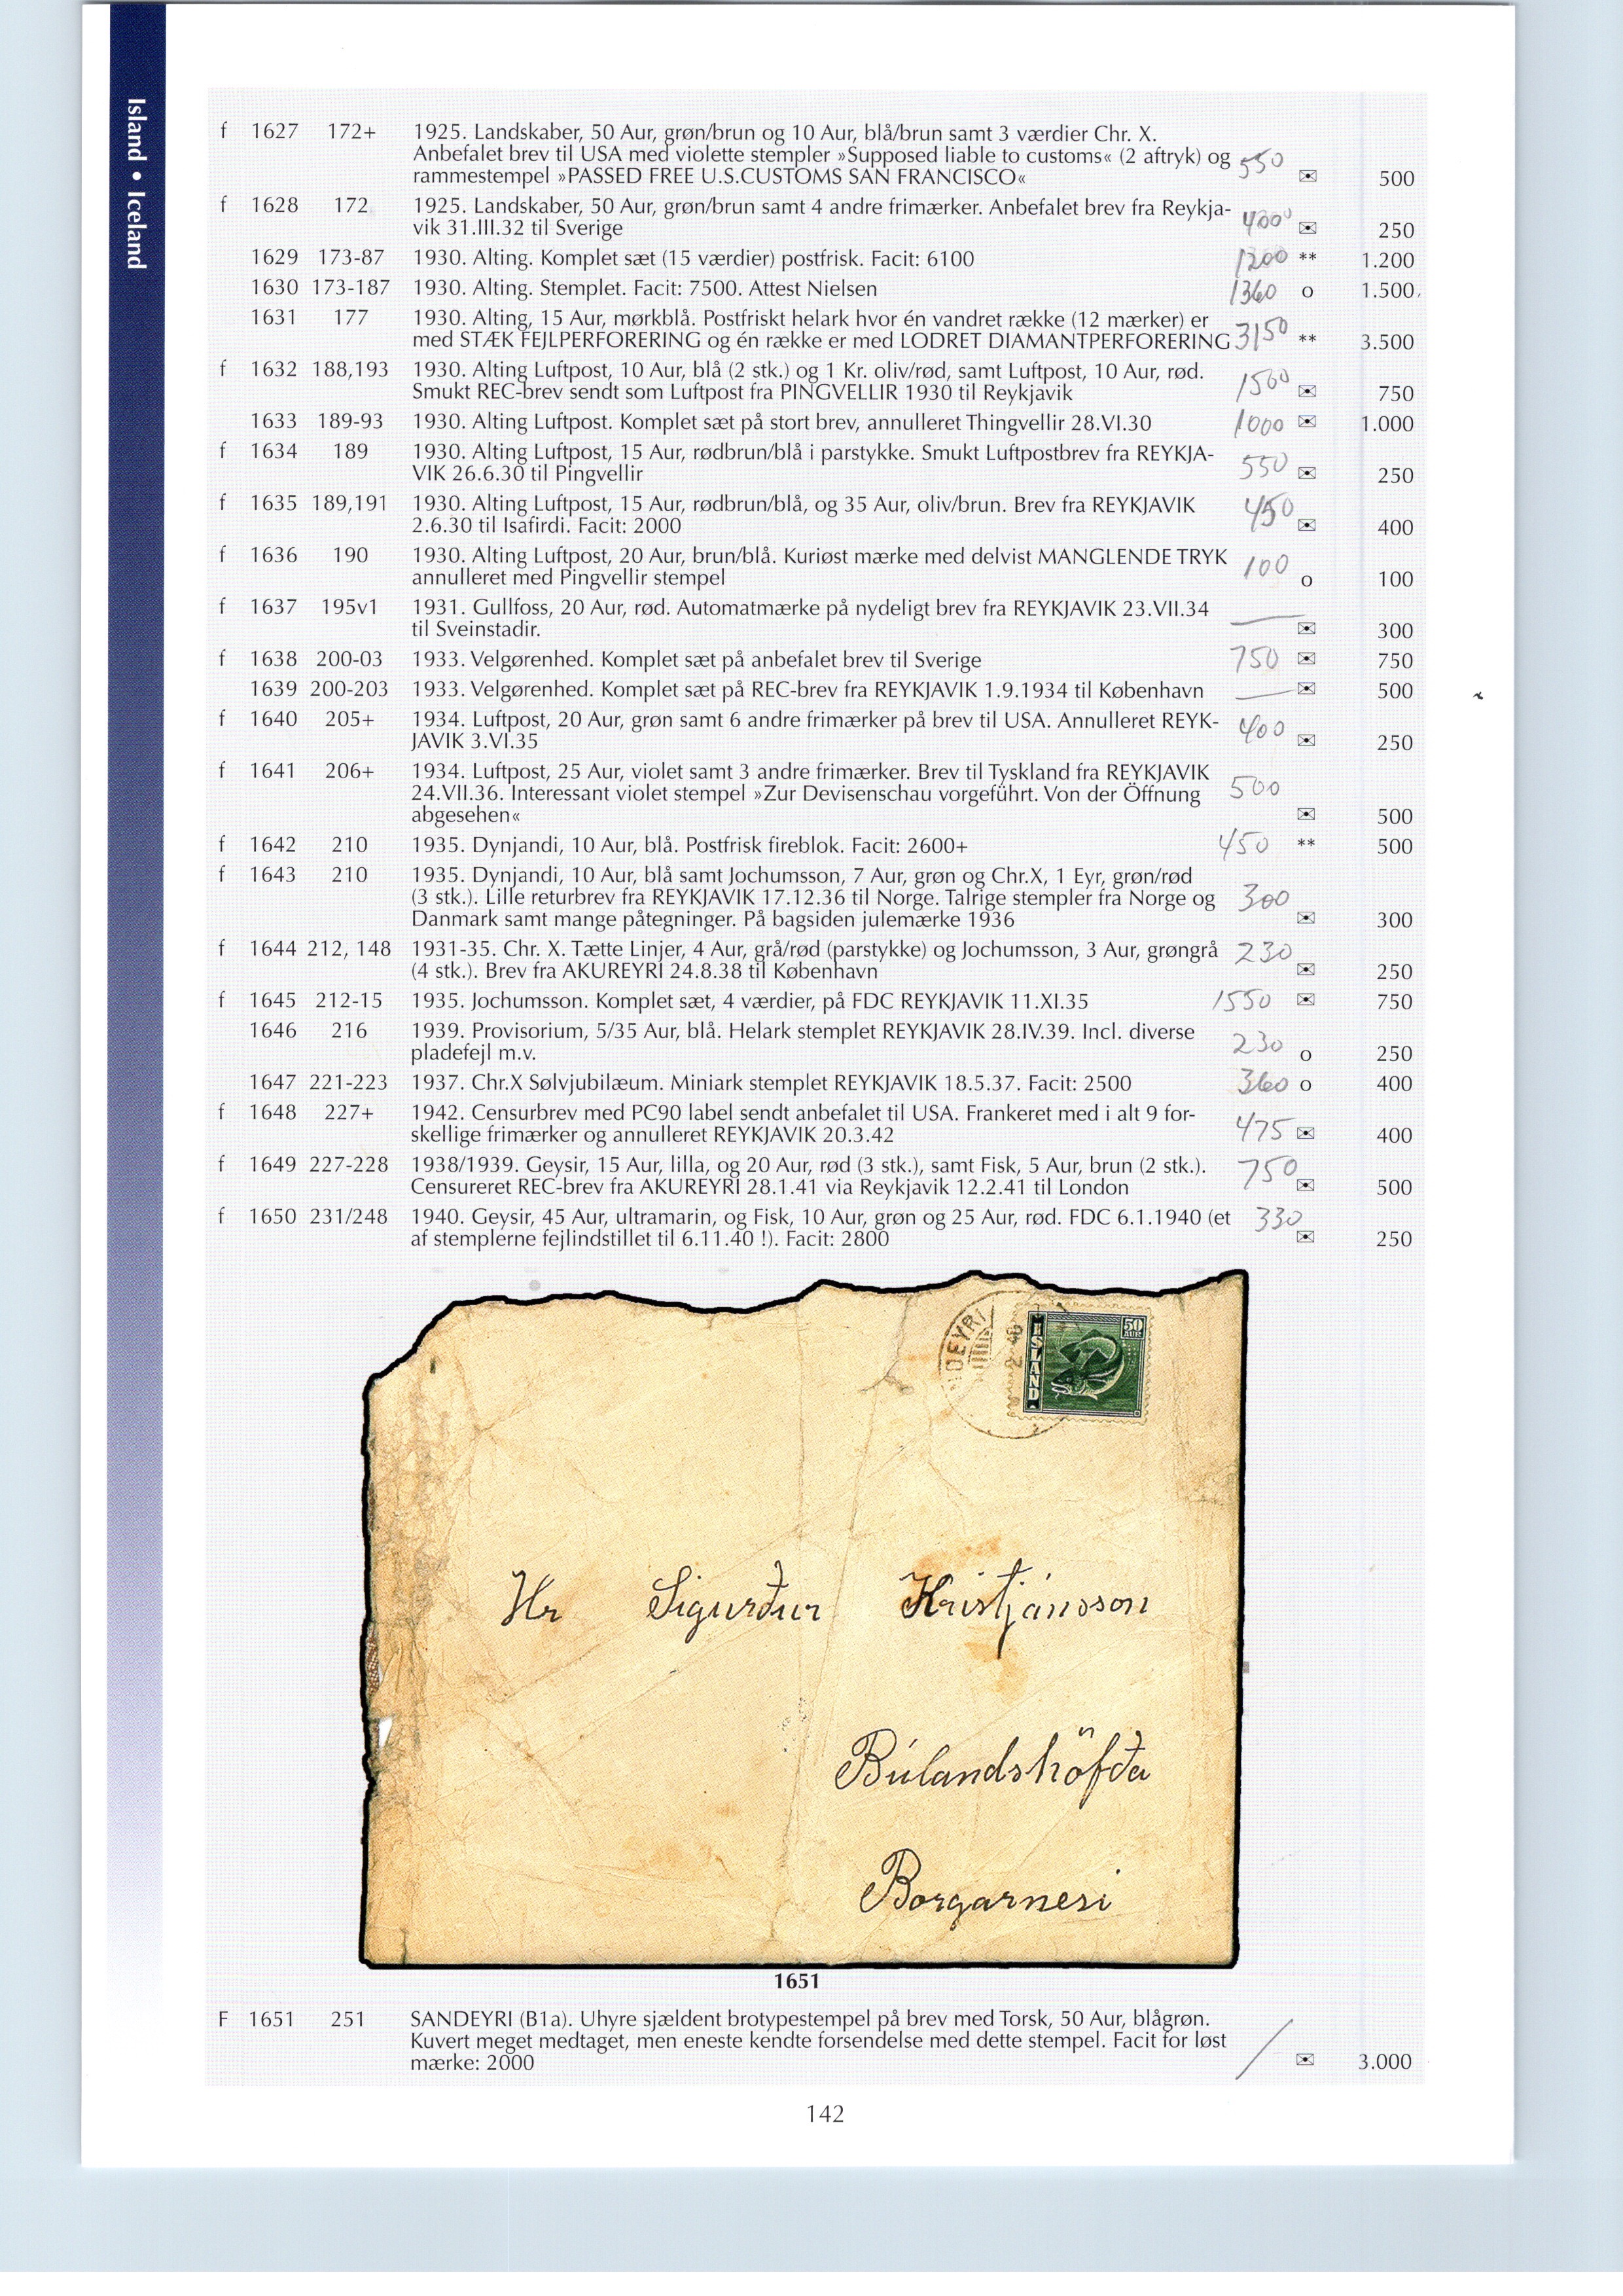 Island • Iceland
f 1627 172+ 1925. Landskaber, 50 Aur, grøn/brun og 10 Aur, blå/brun samt 3 værdier Chr. X.
Anbefalet brev til USA med violette stempler »Supposed liable to customs« (2 aftryk) og 550
rammestempel »PASSED FREE U.S.CUSTOMS SAN FRANCISCO« ✉ 500
f 1628 172 1925. Landskaber, 50 Aur, grøn/brun samt 4 andre frimærker. Anbefalet brev fra Reykja-
vik 31.III.32 til Sverige ✉ 250
1629 173-87 1930. Alting. Komplet sæt (15 værdier) postfrisk. Facit: 6100 1200 ** 1.200
1630 173-187 1930. Alting. Stemplet. Facit: 7500. Attest Nielsen 1360 o 1.500
1631 177 1930. Alting, 15 Aur, mørkblå. Postfriskt helark hvor én vandret række (12 mærker) er
med STÆK FEJLPERFORERING og én række er med LODRET DIAMANTPERFORERING 3150 ** 3.500
f 1632 188,193 1930. Alting Luftpost, 10 Aur, blå (2 stk.) og 1 Kr. oliv/rød, samt Luftpost, 10 Aur, rød.
Smukt REC-brev sendt som Luftpost fra PINGVELLIR 1930 til Reykjavik 1500 ✉ 750
1633 189-93 1930. Alting Luftpost. Komplet sæt på stort brev, annulleret Thingvellir 28.VI.30 1000 ✉ 1.000
f 1634 189 1930. Alting Luftpost, 15 Aur, rødbrun/blå i parstykke. Smukt Luftpostbrev fra REYKJA-
VIK 26.6.30 til Pingvellir 550 ✉ 250
f 1635 189,191 1930. Alting Luftpost, 15 Aur, rødbrun/blå, og 35 Aur, oliv/brun. Brev fra REYKJAVIK
2.6.30 til Isafirdi. Facit: 2000 450 ✉ 400
f 1636 190 1930. Alting Luftpost, 20 Aur, brun/blå. Kuriøst mærke med delvist MANGLENDE TRYK
annulleret med Pingvellir stempel 100 o 100
f 1637 195v1 1931. Gullfoss, 20 Aur, rød. Automatmærke på nydeligt brev fra REYKJAVIK 23.VII.34
til Sveinstadir. ✉ 300
f 1638 200-03 1933. Velgørenhed. Komplet sæt på anbefalet brev til Sverige 750 ✉ 750
1639 200-203 1933. Velgørenhed. Komplet sæt på REC-brev fra REYKJAVIK 1.9.1934 til København ✉ 500
f 1640 205+ 1934. Luftpost, 20 Aur, grøn samt 6 andre frimærker på brev til USA. Annulleret REYK-
JAVIK 3.VI.35 400 ✉ 250
f 1641 206+ 1934. Luftpost, 25 Aur, violet samt 3 andre frimærker. Brev til Tyskland fra REYKJAVIK
24.VII.36. Interessant violet stempel »Zur Devisenschau vorgeführt. Von der Öffnung 500
abgesehen« ✉ 500
f 1642 210 1935. Dynjandi, 10 Aur, blå. Postfrisk fireblok. Facit: 2600+ 450 ** 500
f 1643 210 1935. Dynjandi, 10 Aur, blå samt Jochumsson, 7 Aur, grøn og Chr.X, 1 Eyr, grøn/rød
(3 stk.). Lille returbrev fra REYKJAVIK 17.12.36 til Norge. Talrige stempler fra Norge og 300
Danmark samt mange påtegninger. På bagsiden julemærke 1936 ✉ 300
f 1644 212, 148 1931-35. Chr. X. Tætte Linjer, 4 Aur, grå/rød (parstykke) og Jochumsson, 3 Aur, grøngrå 230
(4 stk.). Brev fra AKUREYRI 24.8.38 til København ✉ 250
f 1645 212-15 1935. Jochumsson. Komplet sæt, 4 værdier, på FDC REYKJAVIK 11.XI.35 1550 ✉ 750
1646 216 1939. Provisorium, 5/35 Aur, blå. Helark stemplet REYKJAVIK 28.IV.39. Incl. diverse
pladefejl m.v. 230 o 250
1647 221-223 1937. Chr.X Sølvjubilæum. Miniark stemplet REYKJAVIK 18.5.37. Facit: 2500 360 o 400
f 1648 227+ 1942. Censurbrev med PC90 label sendt anbefalet til USA. Frankeret med i alt 9 for-
skellige frimærker og annulleret REYKJAVIK 20.3.42 475 ✉ 400
f 1649 227-228 1938/1939. Geysir, 15 Aur, lilla, og 20 Aur, rød (3 stk.), samt Fisk, 5 Aur, brun (2 stk.).
Censureret REC-brev fra AKUREYRI 28.1.41 via Reykjavik 12.2.41 til London 750 ✉ 500
f 1650 231/248 1940. Geysir, 45 Aur, ultramarin, og Fisk, 10 Aur, grøn og 25 Aur, rød. FDC 6.1.1940 (et 330
af stemplerne fejlindstillet til 6.11.40 !). Facit: 2800 ✉ 250
50
AUR
ÍSLAND
Hr Sigurður Kristjánsson
Búlandshöfða
Borgarnesi
1651
F 1651 251 SANDEYRI (B1a). Uhyre sjældent brotypestempel på brev med Torsk, 50 Aur, blågrøn.
Kuvert meget medtaget, men eneste kendte forsendelse med dette stempel. Facit for løst
mærke: 2000 ✉ 3.000
142